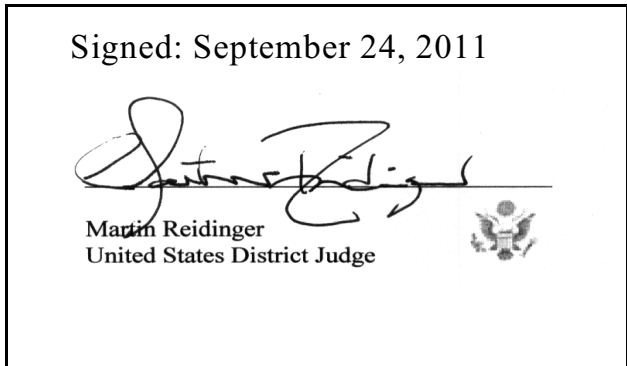 Signed: September 24, 2011
Martin Reidinger
Martin Reidinger
United States District Judge